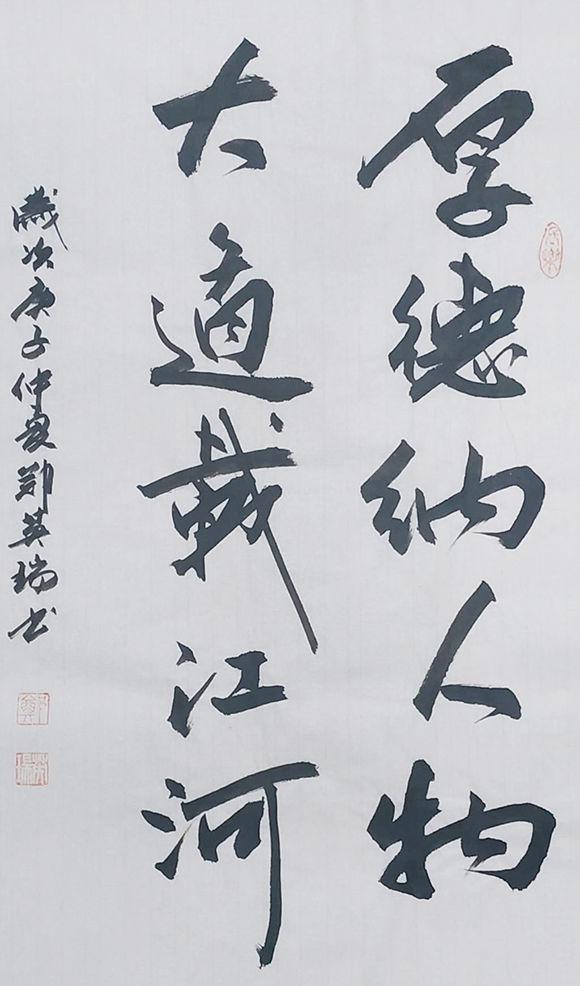 厚德纳人物
大道载江河
歲次庚子仲夏郑英瑞书